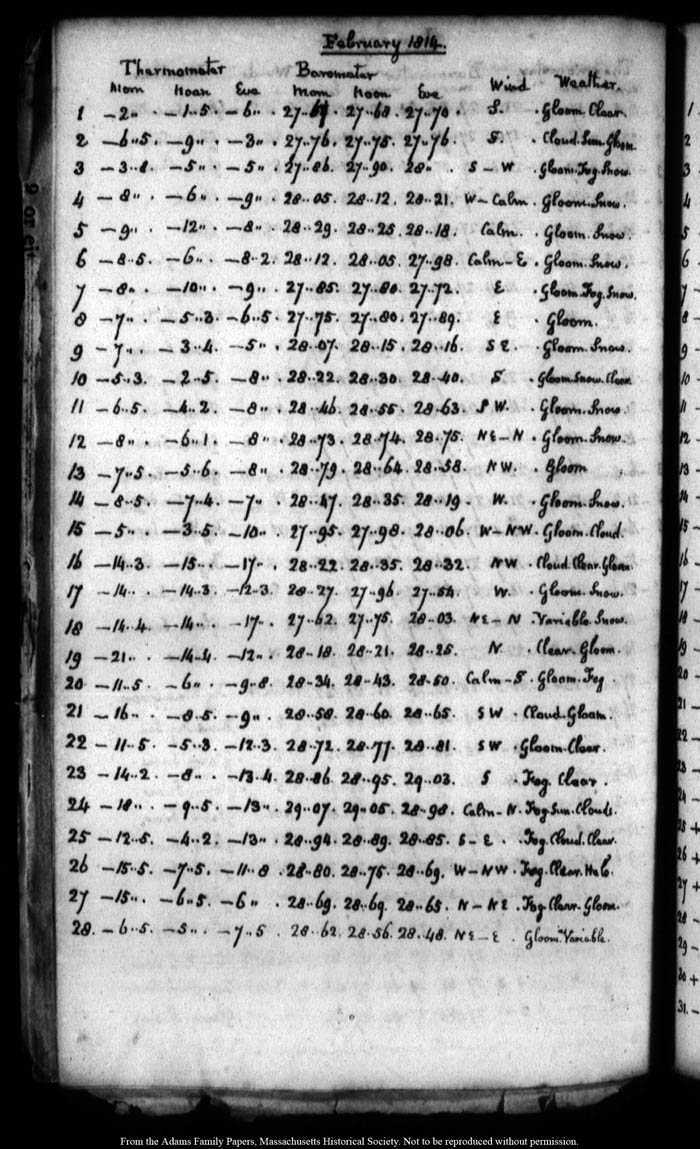 February 1814.
Thermometer Barometer
Morn Noon Eve Morn Noon Eve Wind Weather.
1 –2" –1..5. –6". 27.. 27..68. 27..70. S. Gloom. Clear.
2 –6..5. –9". –3". 27..76. 27..75. 27..76. S. Cloud. Sun. Gloom.
3 –3..8 –5". –5". 27..86. 27..90. 28". S – W. Gloom. Fog. Snow.
4 –8". –6". –9". 28..05. 28..12. 28..21. W – Calm. Gloom. Snow.
5 –9". –12". –8". 28..29. 28..25. 28..18. Calm. Gloom. Snow.
6 –8..5. –6". –8..2. 28..12. 28..05. 27..98. Calm – E. Gloom. Snow.
7 –8". –10". –9". 27..85. 27..80. 27..72. E. Gloom. Fog. Snow.
8 –7". –5..3. –6..5. 27..75. 27..80. 27..89. E. Gloom.
9 –7". –3..4. –5". 28..07. 28..15. 28..16. S E. Gloom. Snow.
10 –5..3. –2..5. –8". 28..22. 28..30. 28..40. S. Gloom. Snow. Clear.
11 –6..5. –4..2. –8". 28..46. 28..55. 28..63. S W. Gloom. Snow.
12 –8". –6..1. –8". 28..73. 28..74. 28..75. NE – N. Gloom. Snow.
13 –7..5. –5..6. –8". 28..79. 28..64. 28..58. NW. Gloom
14 –8..5. –7..4. –7". 28..47. 28..35. 28..19. W. Gloom. Snow.
15 –5". –3..5. –10". 27..95. 27..98. 28..06. W – NW. Gloom. Cloud.
16 –14..3. –15". –17". 28..22. 28..35. 28..32. NW. Cloud. Clear. Gloom.
17 –14". –14..3. –12..3. 28..27. 27..96. 27..54. W. Gloom. Snow.
18 –14..4. –14". –17". 27..62. 27..75. 28..03. NE – N. Variable. Snow.
19 –21". –14..4. –12". 28..18. 28..21. 28..25. N. Clear. Gloom.
20 –11..5. –6". –9..8. 28..34. 28..43. 28..50. Calm – S. Gloom. Fog
21 –16". –8..5. –9". 28..58. 28..60. 28..65. S W. Cloud. Gloom.
22 –11..5. –5..3. –12..3. 28..72. 28..77. 28..81. S W. Gloom. Clear.
23 –14..2. –8". –13..4. 28..86. 28..95. 29..03. S. Fog. Clear.
24 –18". –9..5. –13". 29..07. 29..05. 28..98. Calm – N. Fog. Sun. Clouds.
25 –12..5. –4..2. –13". 28..94. 28..89. 28..85. S – E. Fog. Cloud. Clear.
26 –15..5. –7..5. –11..8. 28..80. 28..75. 28..69. W – NW. Fog. Clear. Halo.
27 –15". –6..5. –6". 28..69. 28..69. 28..65. N – NE. Fog. Clear. Gloom.
28. –6..5. –5". –7..5 28..62. 28..56. 28..48. NE – E. Gloom. Variable.
From the Adams Family Papers, Massachusetts Historical Society. Not to be reproduced without permission.